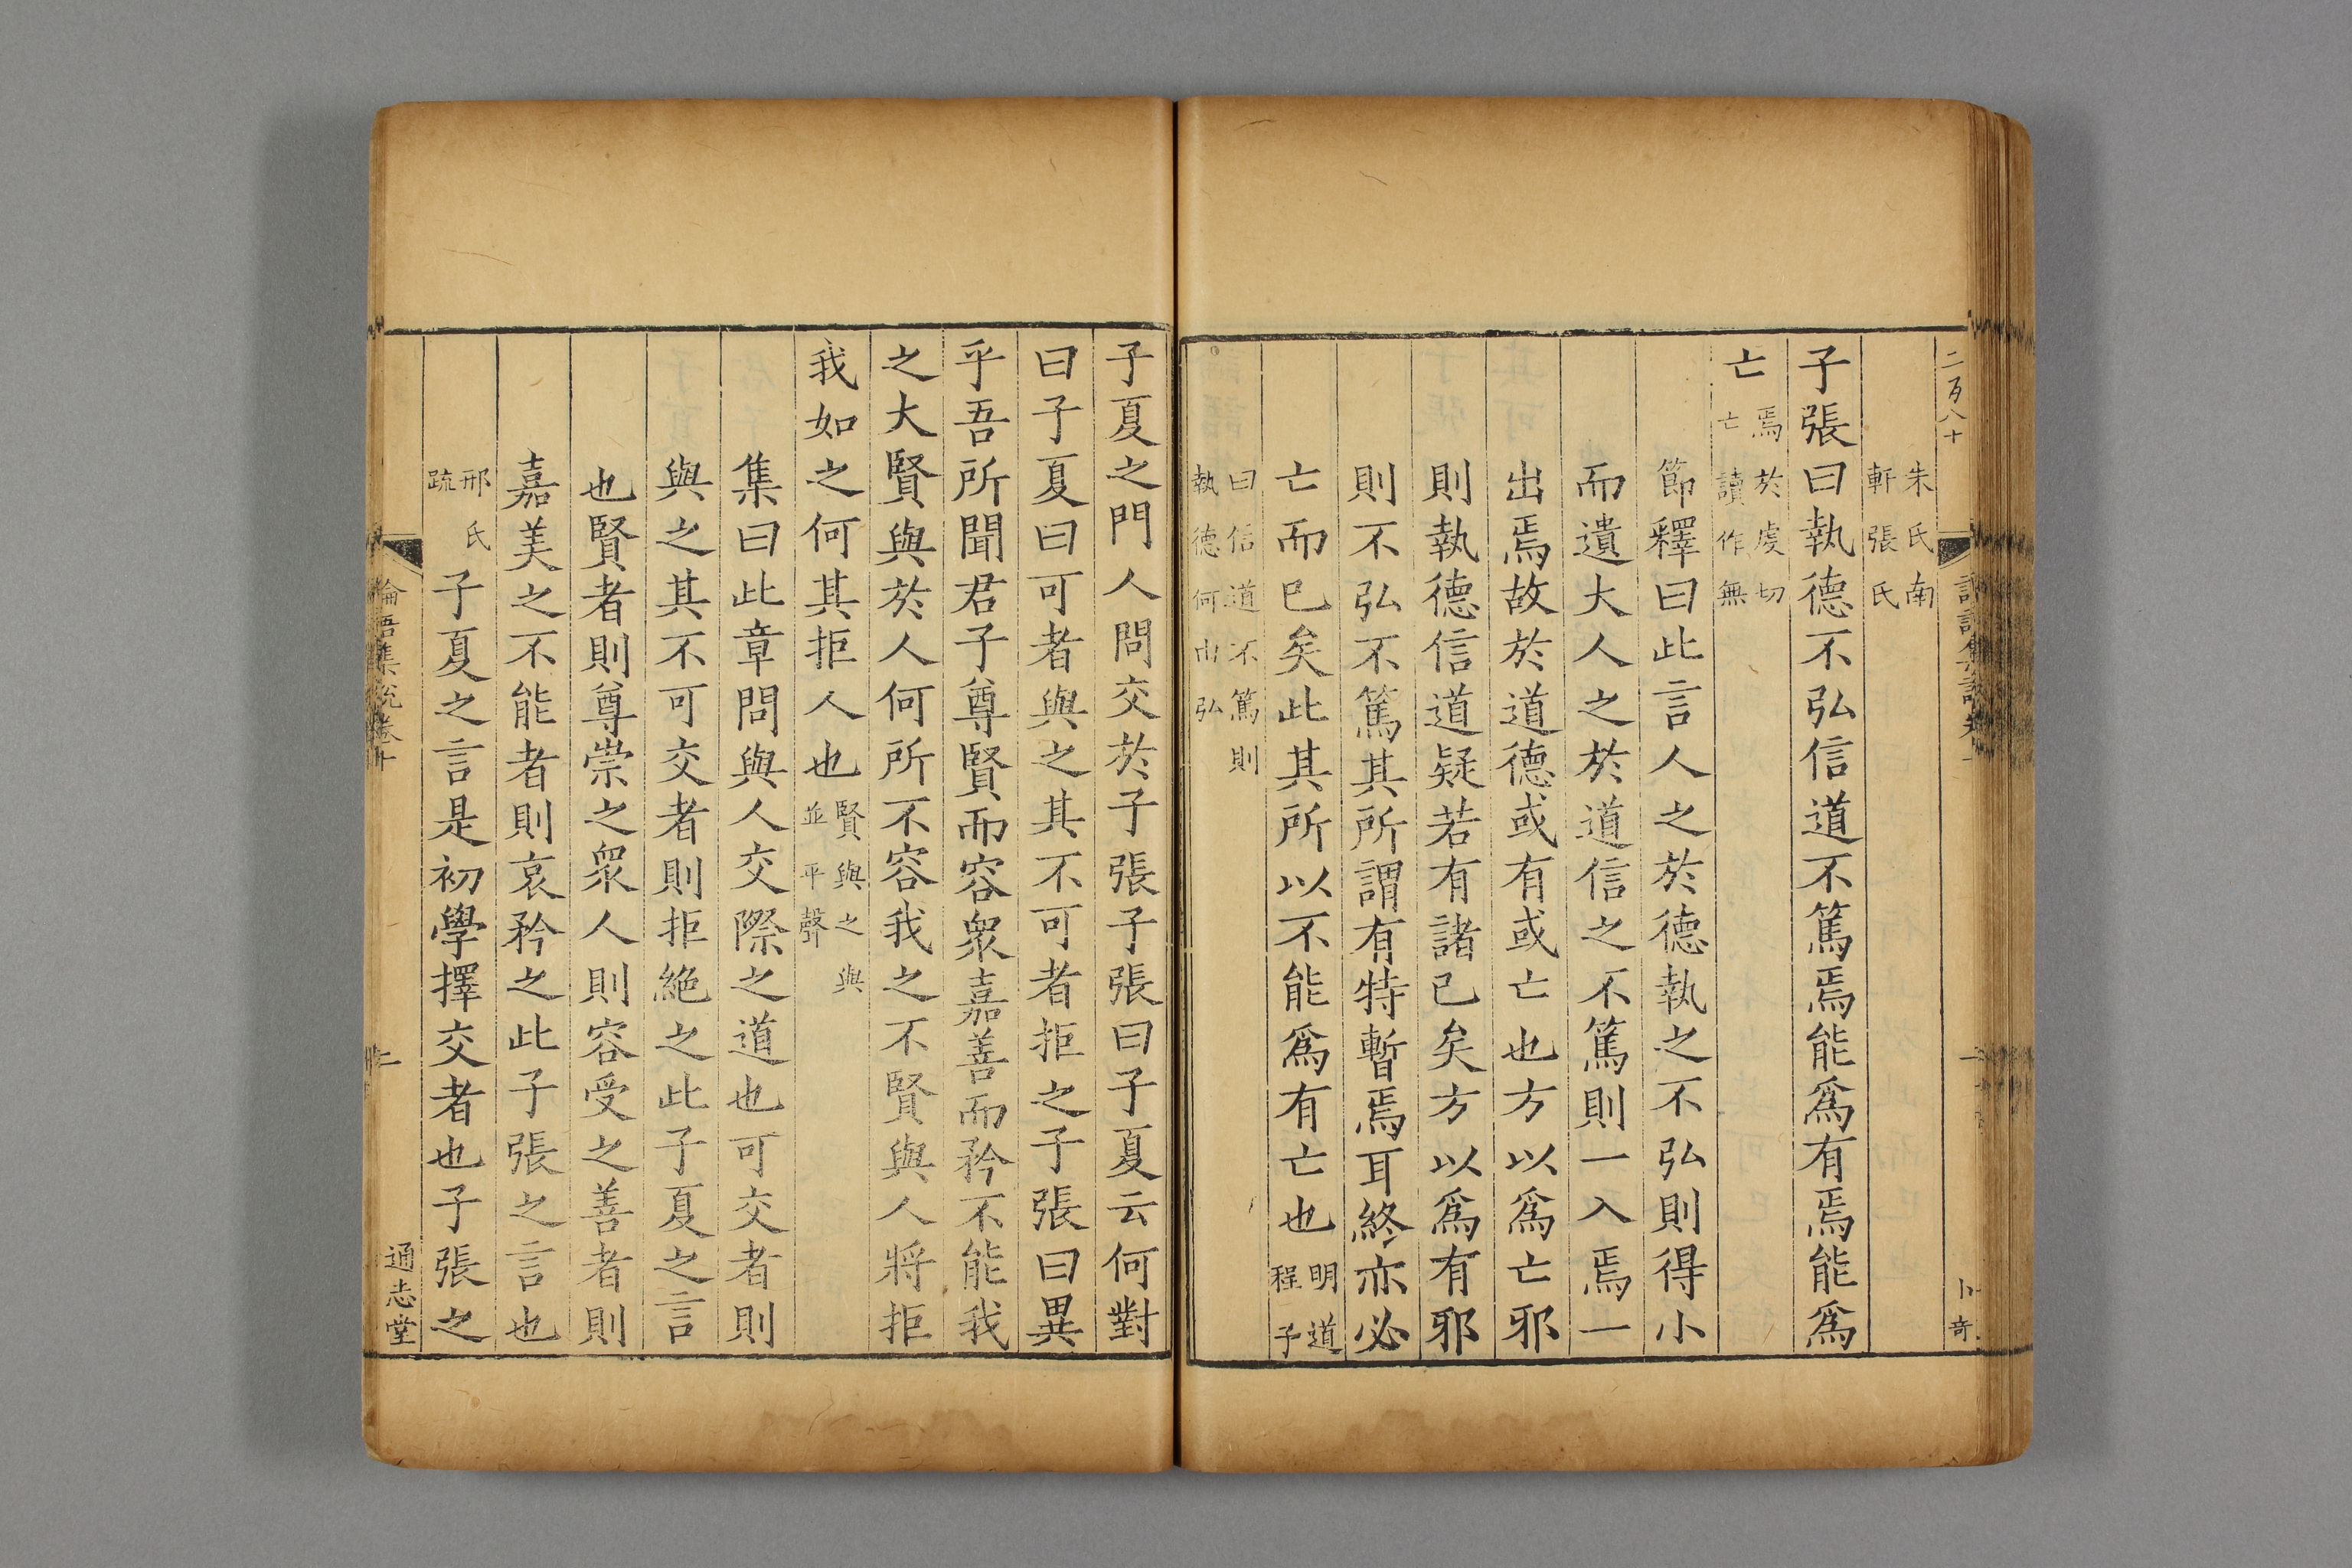 二百八十
卜奇
朱氏南軒張氏
子張曰執德不弘信道不篤焉能爲有焉能爲
亡焉於虔切亡讀作無
節釋曰此言人之於德執之不弘則得小
而遺大人之於道信之不篤則一入焉一
出焉故於道德或有或亡也方以爲亡邪
則執德信道疑若有諸己矣方以爲有邪
則不弘不篤其所謂有特暫焉耳終亦必
亡而已矣此其所以不能爲有亡也明道程子
曰信道不篤則執德何由弘
子夏之門人問交於子張子張曰子夏云何對
曰子夏曰可者與之其不可者拒之子張曰異
乎吾所聞君子尊賢而容衆嘉善而矜不能我
之大賢與於人何所不容我之不賢與人將拒
我如之何其拒人也賢與之與並平聲
集曰此章問與人交際之道也可交者則
與之其不可交者則拒絶之此子夏之言
也賢者則尊崇之衆人則容受之善者則
嘉美之不能者則哀矜之此子張之言也
邢氏疏子夏之言是初學擇交者也子張之
論語集說卷十
二
通志堂